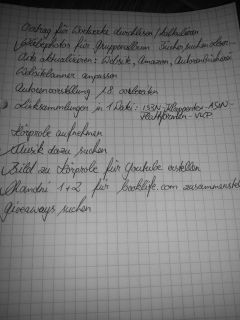 Vertrag für Wortwerke durchlesen/kalkulieren
Werbephotos für Gruppenalbum
Vita aktualisieren: Website, Amazon, Autorenbücherei
Websitebanner anpassen
Autorenvorstellung 1.8 vorbereiten
Linksammlungen in 1 Datei: ISBN - Klappentext - ASIN -
Plattformlinks - VLP
Hörprobe aufnehmen
Musik dazu suchen
Bild zu Hörprobe für Youtube erstellen
1+2 für booklife.com zusammenstell
giveaways suchen